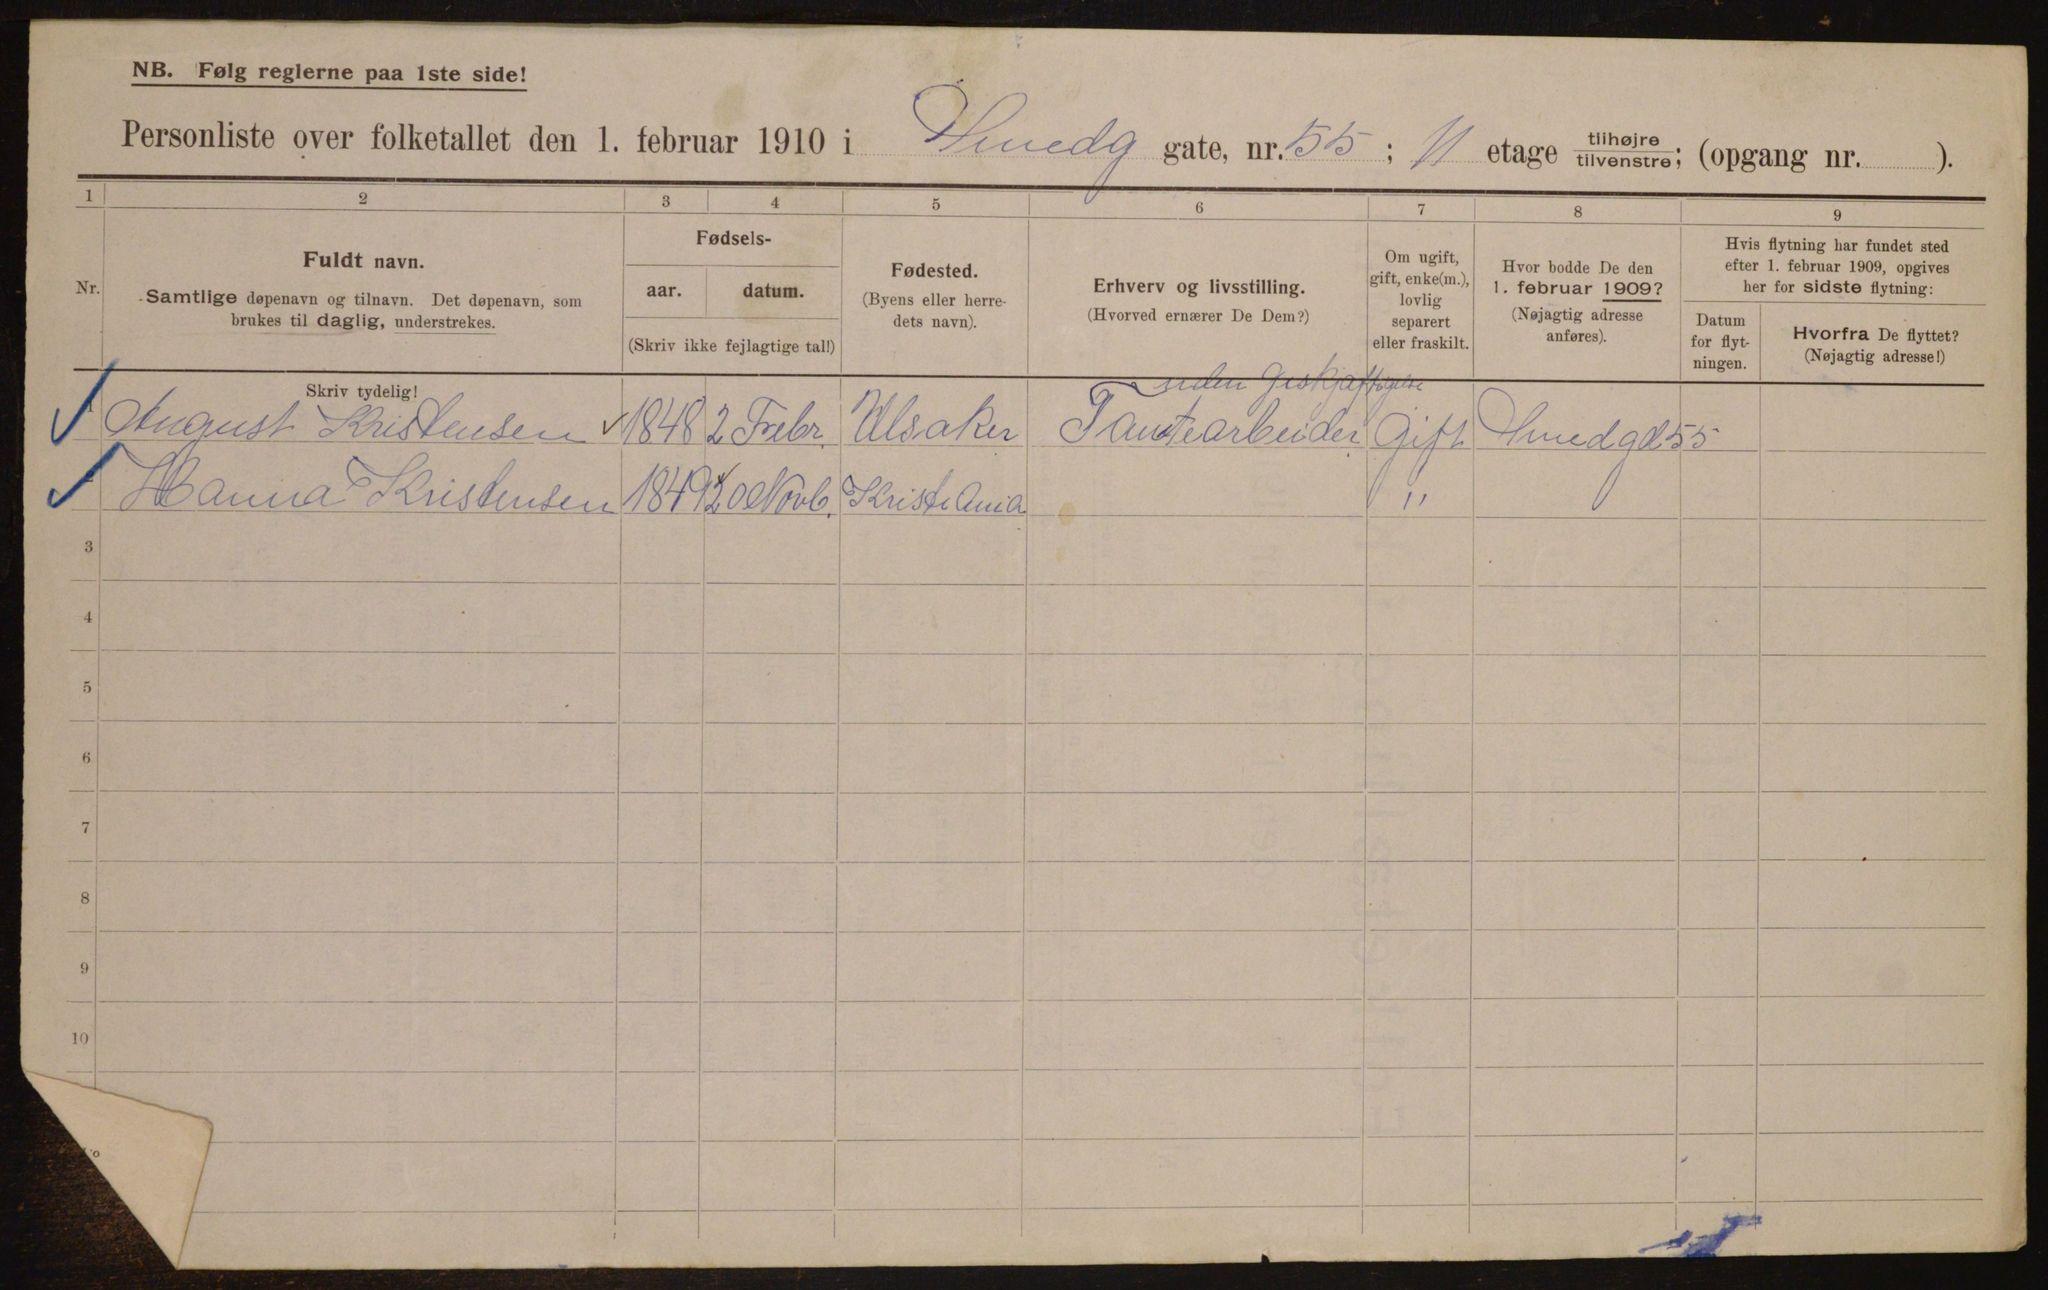 NB. Følg reglerne paa 1ste side!
Personliste over folketallet den 1. februar 1910 i Smedg gate, nr. 55; II etage tilhøjre tilvenstre; (opgang nr. ).
1 2 3 4 5 6 7 8 9
Nr.
Fuldt navn.
Samtlige døpenavn og tilnavn. Det døpenavn, som
brukes til daglig, understrekes.
Fødsels-
aar. datum.
(Skriv ikke fejlagtige tal!)
Fødested.
(Byens eller herre-
dets navn).
Erhverv og livsstilling.
(Hvorved ernærer De Dem?)
Om ugift,
gift, enke(m.),
lovlig
separert
eller fraskilt.
Hvor bodde De den
1. februar 1909?
(Nøjagtig adresse
anføres).
Hvis flytning har fundet sted
efter 1. februar 1909, opgives
her for sidste flytning:
Datum
for flyt-
ningen.
Hvorfra De flyttet?
(Nøjagtig adresse!)
Skriv tydelig!
uden Geskjæftigelse
1 August Kristensen 1848 2 Febr. Ulsaker Gift Smedgd 55
Hanna Kristensen 1849 20 Novb. Kristiania "
3
4
5
6
7
8
9
10